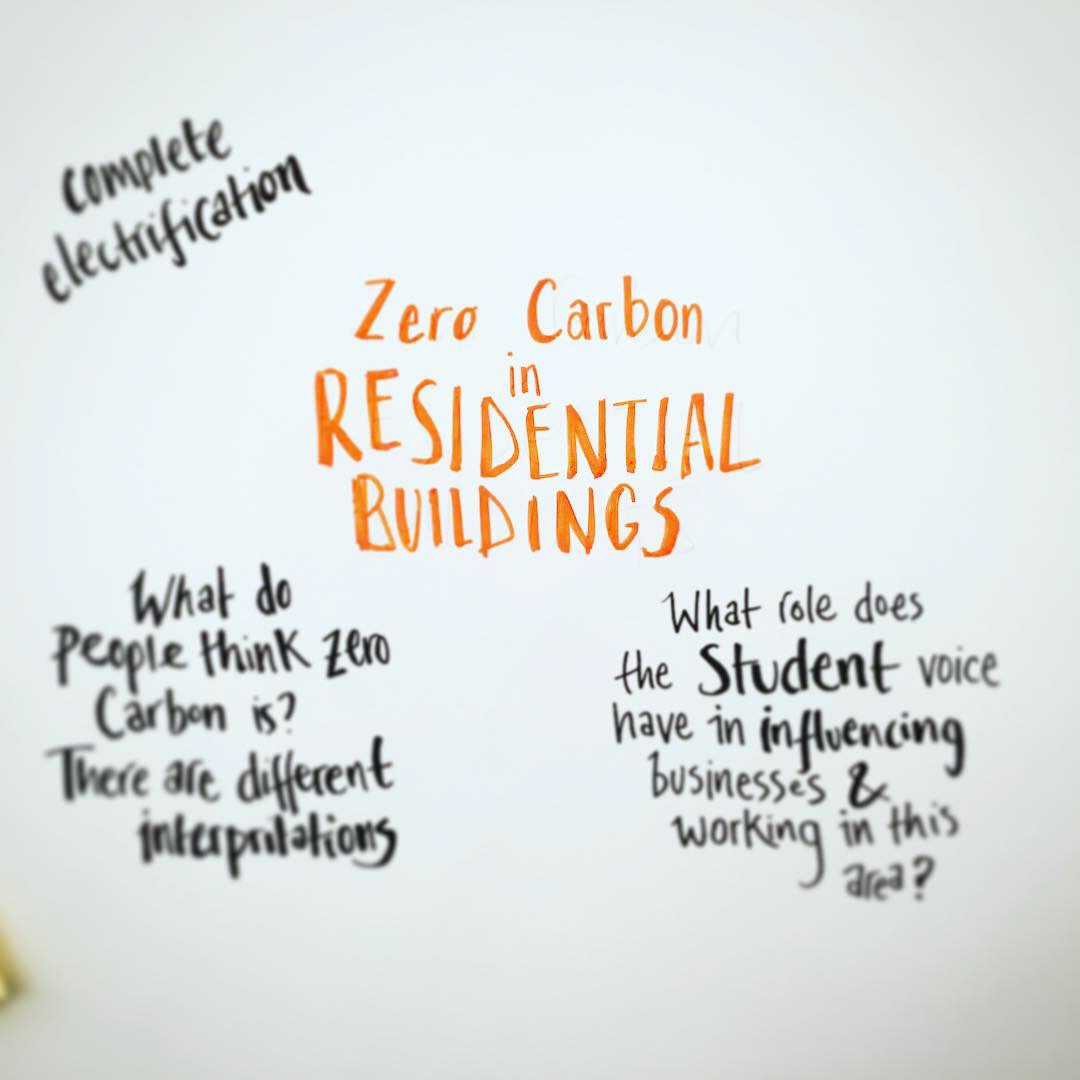 Complete
electrification
Zero Carbon
in
RESIDENTIAL
BUILDINGS
What do
People think zero
Carbon is?
There are different
interpritations
What role does
the Student voice
have in influencing
businesses &
working in this
area?